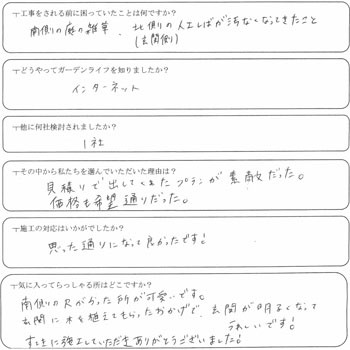 工事をされる前に困っていたことは何ですか？
南側の庭の雑草、北側の人工しばが汚なくなってきたこと
(玄関側)
どうやってガーデンライフを知りましたか？
インターネット
他に何社検討されましたか？
1社
その中から私たちを選んでいただいた理由は？
見積りで出してくれたプランが素敵だった。
価格も希望通りだった。
施工の対応はいかがでしたか？
思った通りになって良かったです!
気に入ってらっしゃる所はどこですか？
南側の尺がかった所が可愛いです。
玄関に木を植えてもらったおかげで、玄関が明るくなって
うれしいです!
すてきに施工していただきありがとうございました!